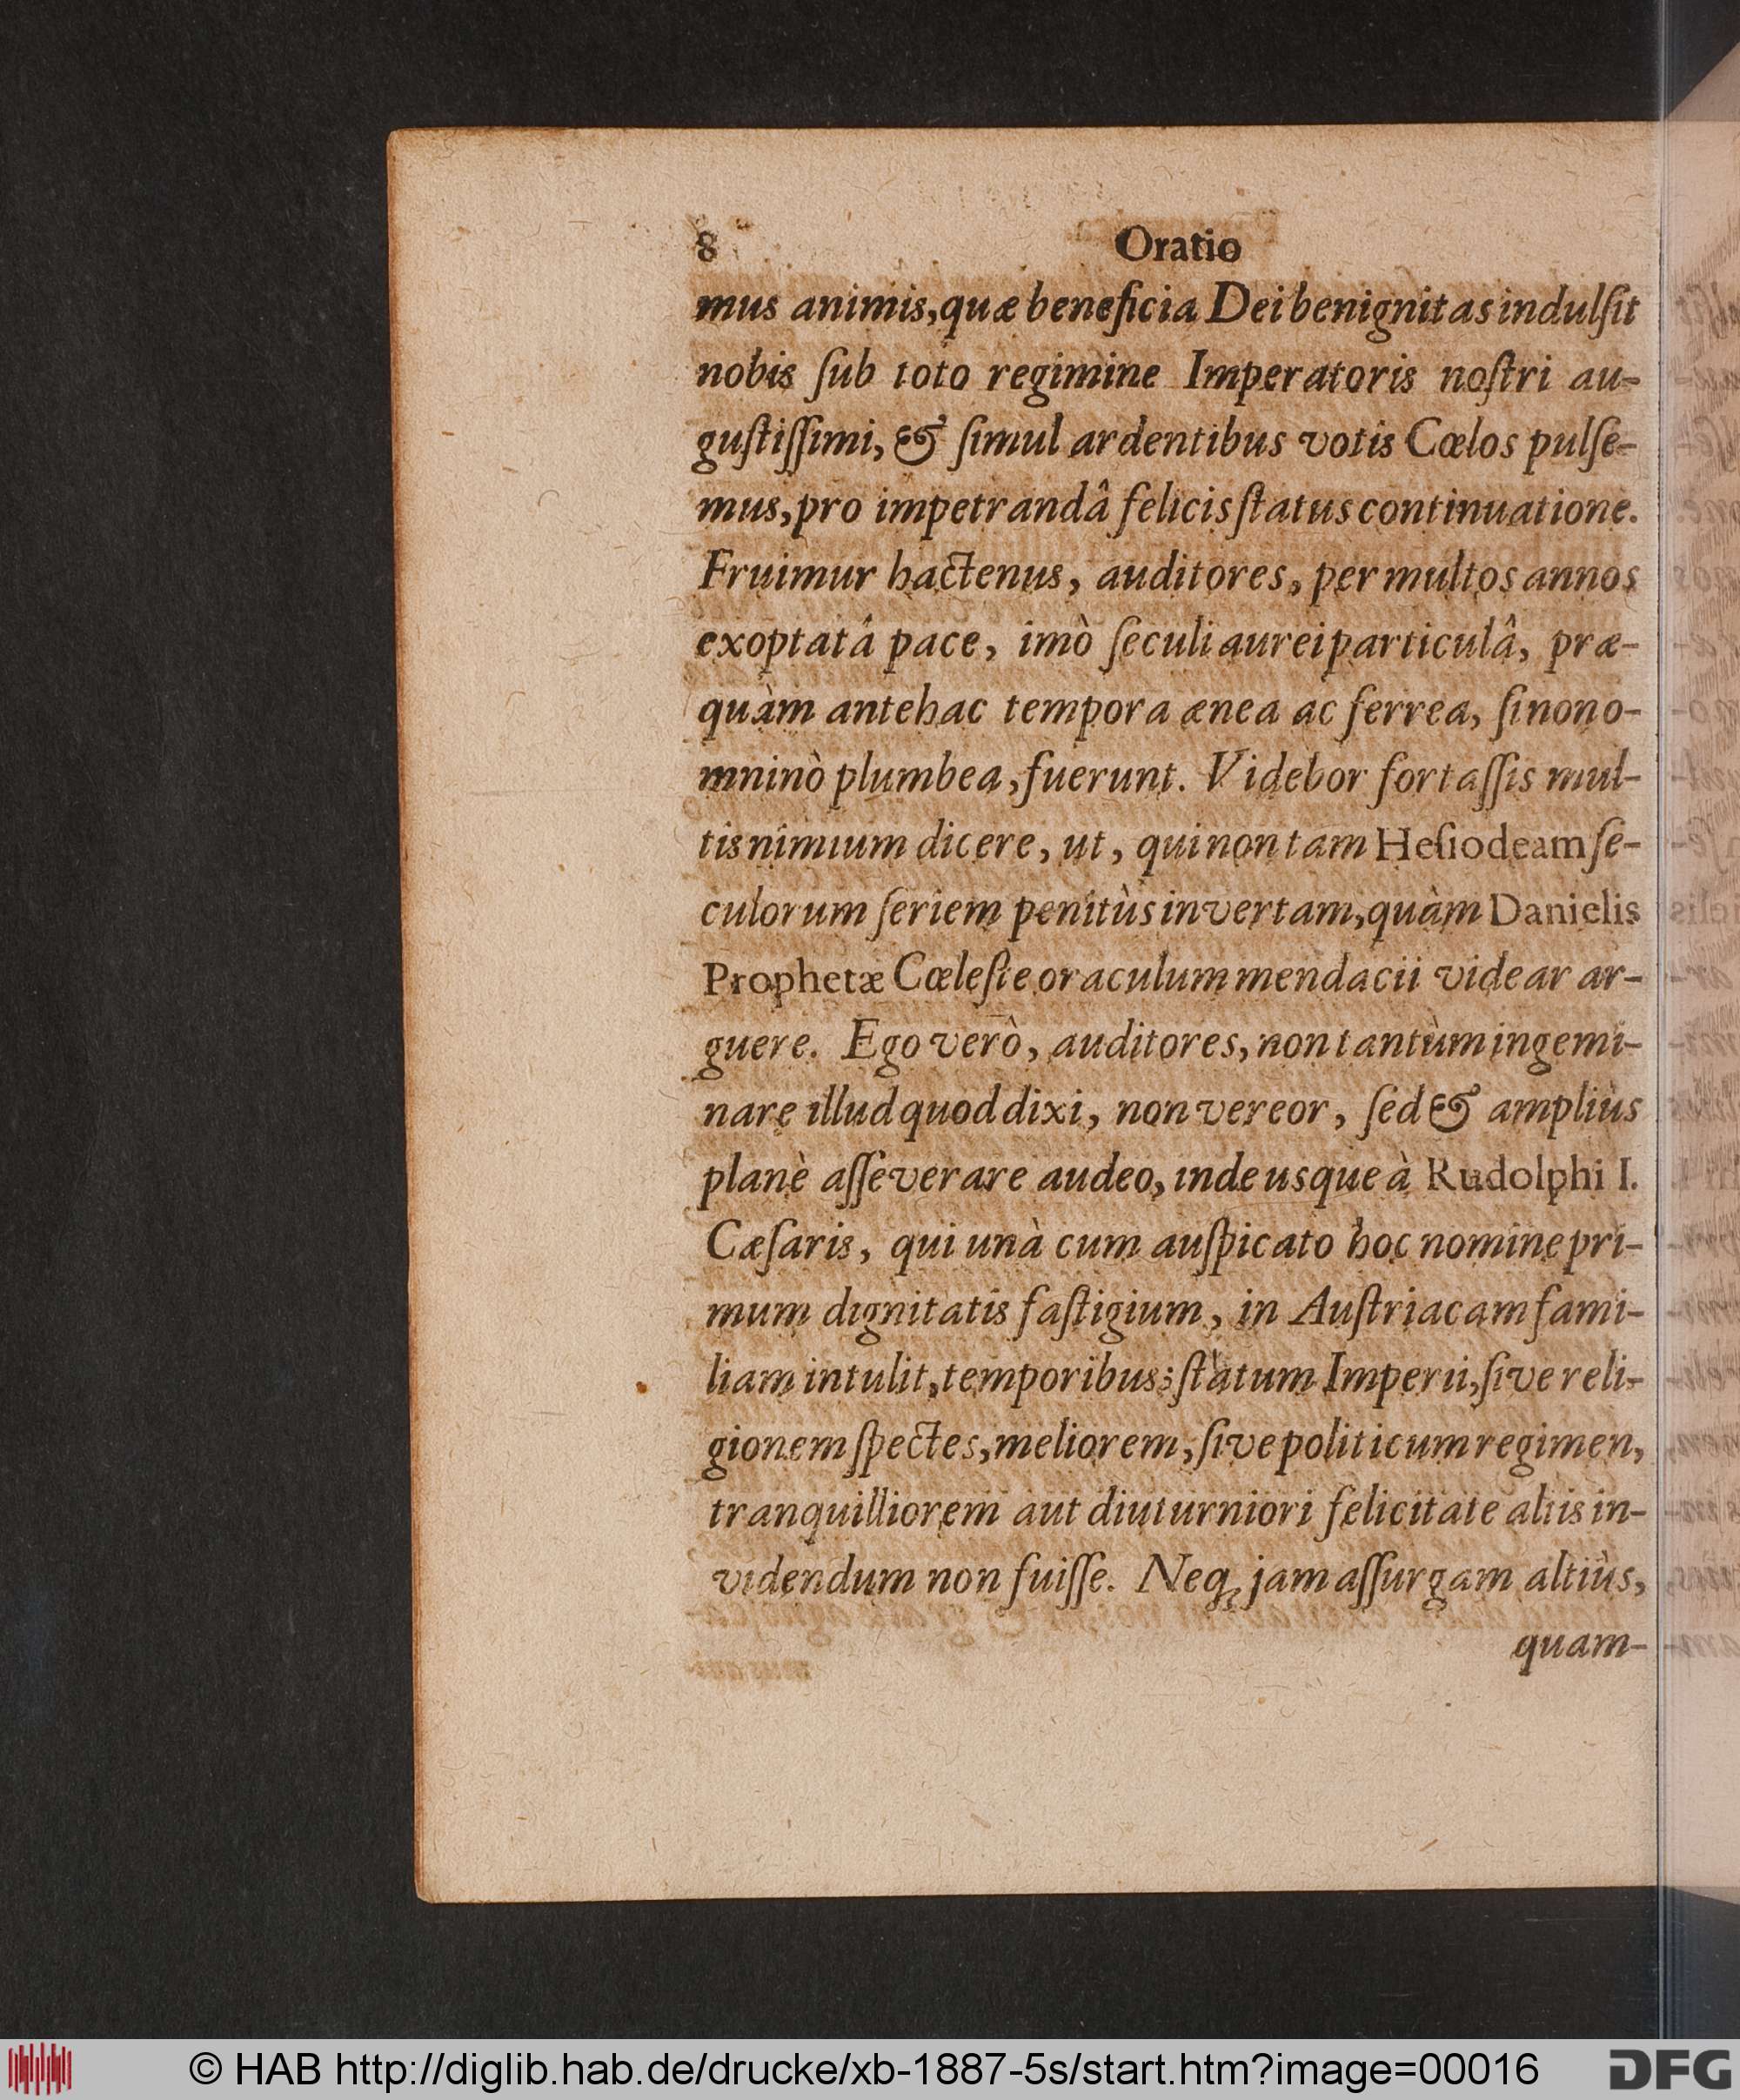 8 Oratio
mus animis, quæ beneficia Dei benignitas indulſit
nobis ſub toto regimine Imperatoris noſtri au-
guſtiſſimi, & ſimul ardentibus votis Cœlos pulſe-
mus, pro impetrandâ felicis ſtatus continuatione.
Fruimur hactenus, auditores, per multos annos
exoptatâ pace, imò ſeculi aurei particulâ, præ-
quàm antehac tempora ænea ac ferrea, ſi non o-
mninò plumbea, fuerunt. Videbor fortaſſis mul-
tis nimium dicere, ut, qui non tam Heſiodeam ſe-
culorum ſeriem penitùs invertam, quàm Danielis
Prophetæ Cœleſte oraculum mendacii videar ar-
guere. Ego verò, auditores, non tantùm ingemi-
nare illud quod dixi, non vereor, ſed & ampliùs
planè aſſeverare audeo, inde usque à Rudolphi I.
Cæſaris, qui unà cum auſpicato hoc nomine pri-
mum dignitatis faſtigium, in Auſtriacam fami-
liam intulit, temporibus; ſtatum Imperii, ſive reli-
gionem ſpectes, meliorem, ſive politicum regimen,
tranquilliorem aut diuturniori felicitate aliis in-
videndum non fuiſſe. Neq; jam aſſurgam altiùs,
quam-
© HAB http://diglib.hab.de/drucke/xb-1887-5s/start.htm?image=00016
DFG